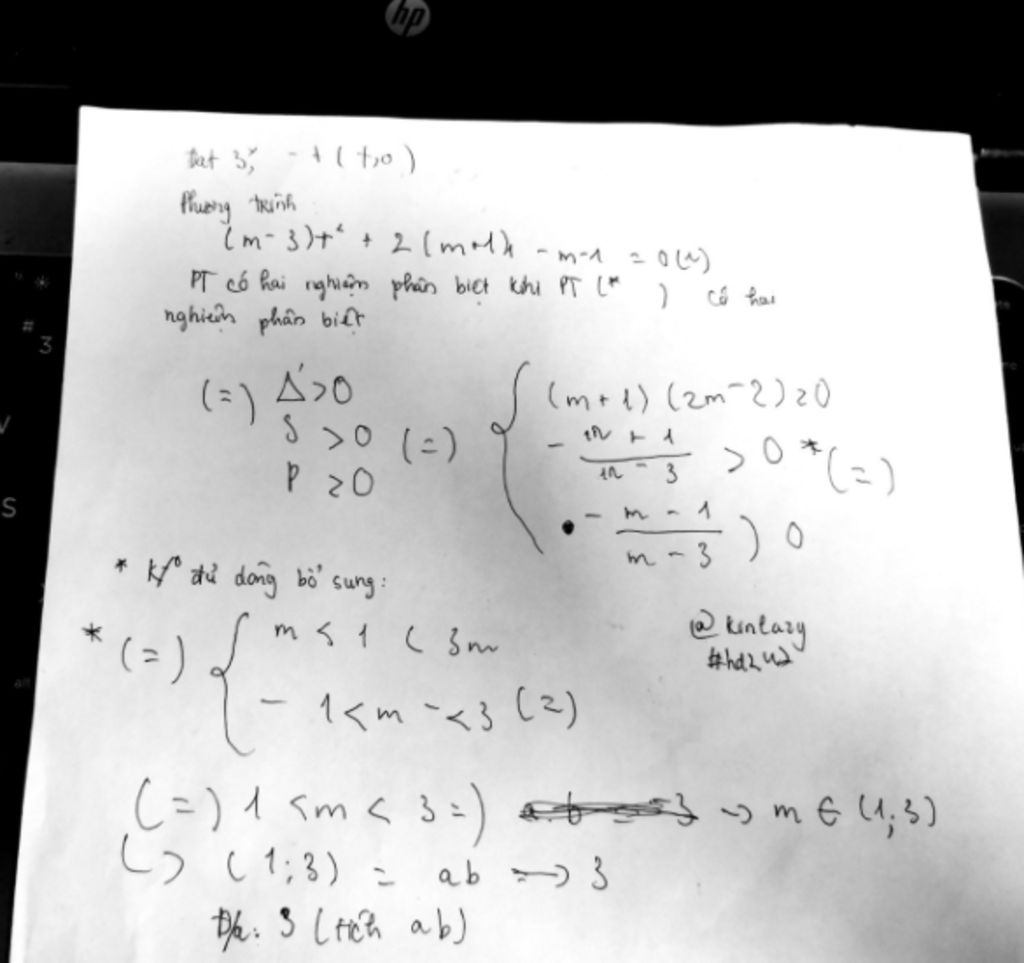 hp
đặt 3ˣ = t (t>0)
Phương trình
(m-3)t² + 2(m+1)t - m-1 = 0 (*)
PT có hai nghiệm phân biệt khi PT (* ) có hai
nghiệm phân biệt
(=) Δ' > 0
S > 0 (=)
P > 0
(m+1) (2m-2) > 0
- \frac{m+1}{m-3} > 0 * (=)
- \frac{m-1}{m-3} > 0
* K/º đủ dòng bổ sung:
* (=) { m < 1 < 3m
- 1 < m - < 3 (2)
@kinlazy
(=) 1 < m < 3 =) → m ∈ (1;3)
↳ (1;3) = ab → 3
Đ/a: 3 (tích ab)